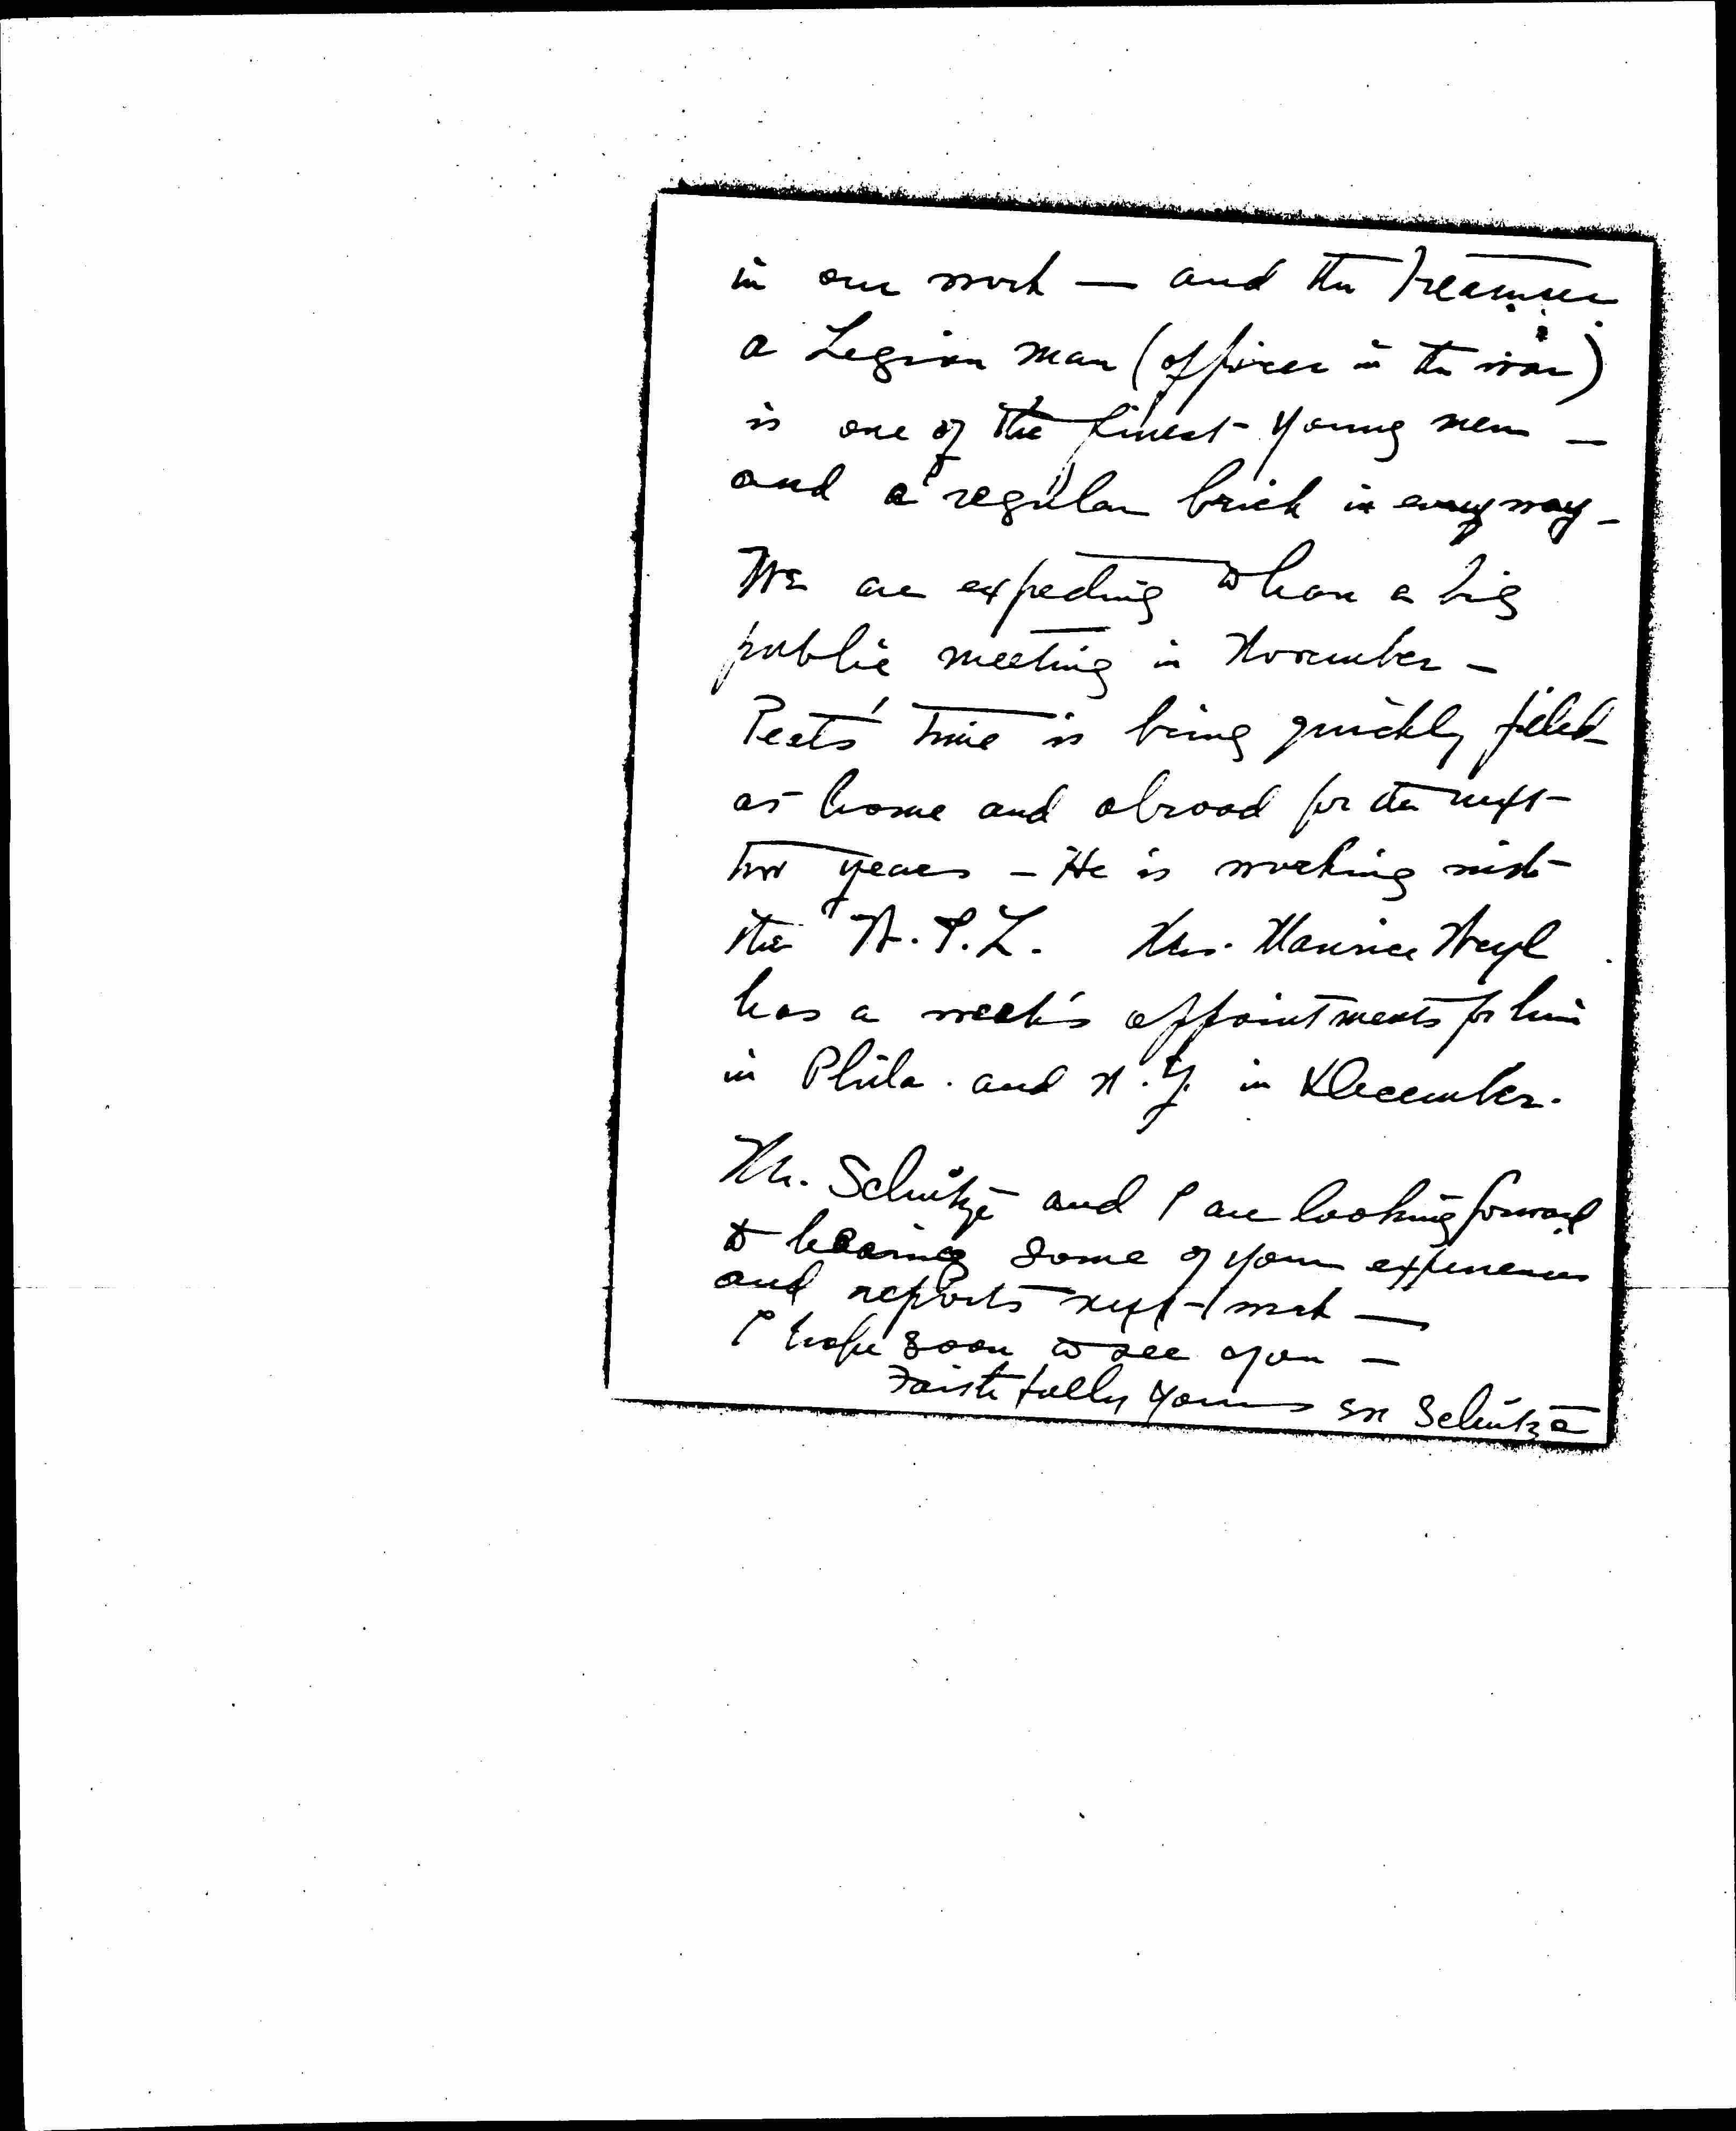 in our work — and the Treasurer
a Legion man (officer in the war)
is one of the finest young men —
and a regular brick in every way —
We are expecting to have a big
public meeting in November —
Peets' time is being quickly filled
at home and abroad for the next
two years — He is working with
the W.I.L. Mrs. Maurice Weyl
has a week's appointments for him
in Phila. and N.Y. in December.
Mr. Schütze and I are looking forward
to hearing some of your experiences
and reports next week —
I hope soon to see you —
Faithfully yours Schütze